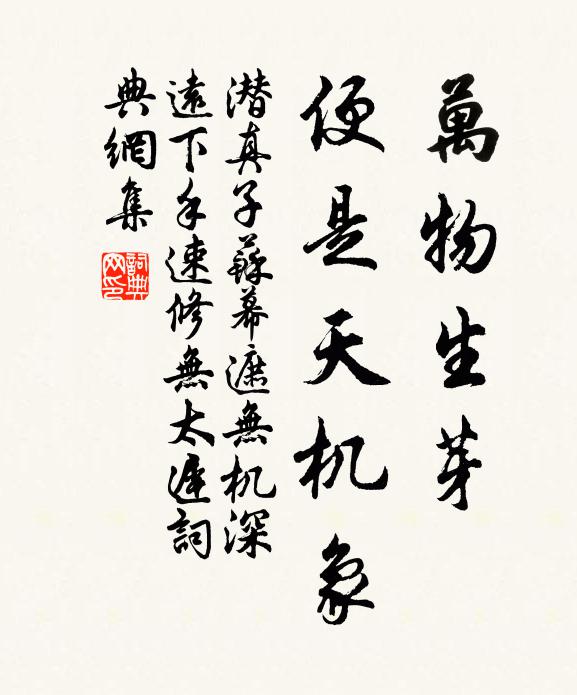 萬物生芽
便是天机象
潜真子蘇幕遮無机深
遠下手速修無太遲詞
典網集
詞典网印